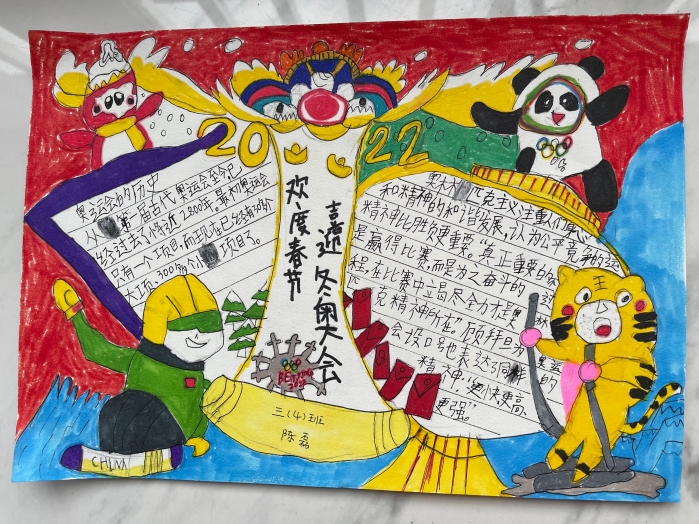 2022
欢度春节
喜迎冬奥大会
奥运会的历史
从第一届古代奥运会至今已
经过去了将近2800年。最初奥运会
只有一个项目,而现在已经有30个
大项,300多个小项目了。
奥林匹克主义注重人们身心
和精神的和谐发展,认为公平竞争的运
精神比胜负更重要。“真正重要的
是赢得比赛,而是为之奋斗的过
程,在比赛中竭尽全力才是奥林
匹克精神所在”顾拜旦
会以口号地表达了同样的
精神:“更快更高
更强”。
奥运
BEIJING
三(4)班
陈磊
CHINA
王